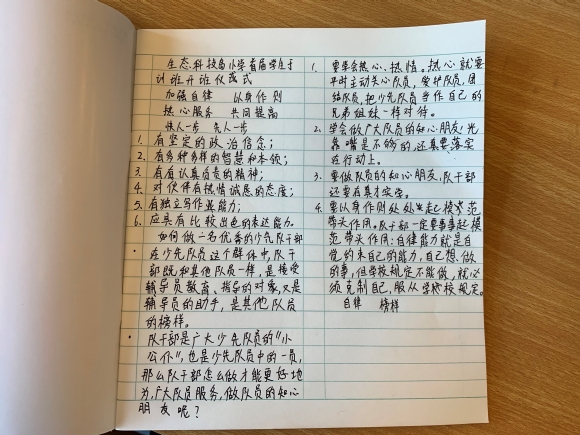 生态科技岛小学首届学生干
训班开班仪式
加强自律 以身作则
热心服务 共同提高
快人一步 先人一步
1. 有坚定的政治信念；
2. 有多种多样的智慧和本领；
3. 有认真负责的精神；
4. 对伙伴有热情诚恳的态度；
5. 有独立写作业能力；
6. 应具有比较出色的表达能力。
如何做一名优秀的少先队干部
在少先队员这个群体中，队干
部既和其他队员一样，是接受
辅导员教育、指导的对象，又是
辅导员的助手，是其他队员
的榜样。
队干部是广大少先队员的“小
公仆”，也是少先队员中的一员，
那么队干部怎么做才能更好地
为广大队员服务，做队员的知心
朋友呢？
1. 要学会热心、热情。热心就要
平时主动关心队员，爱护队员，团
结队员，把少先队员当作自己的
兄弟姐妹一样对待。
2. 学会做广大队员的知心朋友光
靠嘴是不够的，还真要落实
在行动上。
3. 要做队员的知心朋友，队干部
还要有真才实学。
4. 要以身作则处处起模范
带头作用。队干部一定要事事起模
范带头作用：自律能力就是自
觉约束自己的能力，自己想做
的事，但学校规定不能做，就必
须克制自己，服从学校规定。
自律 榜样